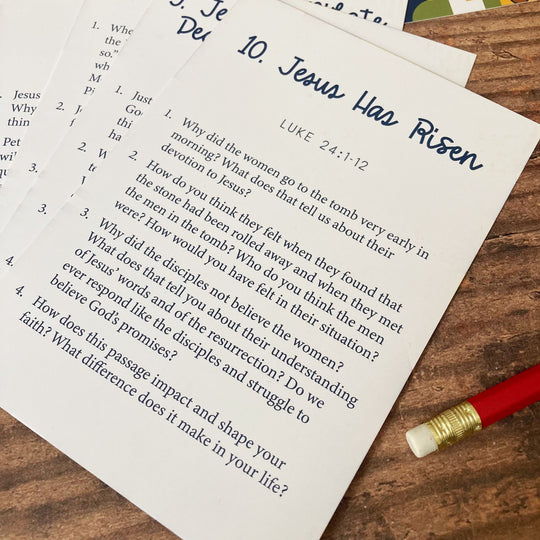 10. Jesus Has Risen
LUKE 24:1-12
1. Why did the women go to the tomb very early in
morning? What does that tell us about their
devotion to Jesus?
2. How do you think they felt when they found that
the stone had been rolled away and when they met
the men in the tomb? Who do you think the men
were? How would you have felt in their situation?
3. Why did the disciples not believe the women?
What does that tell you about their understanding
of Jesus' words and of the resurrection? Do we
ever respond like the disciples and struggle to
believe God's promises?
4. How does this passage impact and shape your
faith? What difference does it make in your life?
1.
the
so."
2.
3.
4.
1. Just
2.
3.
Jesus
Why
thin
Pet
3.
4.